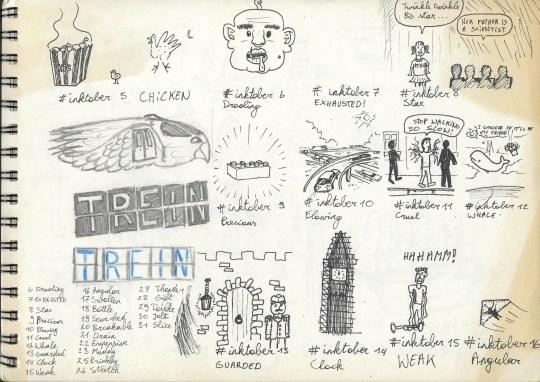 Twinkle twinkle
B8 star...
HER FATHER IS
A SCIENTIST
#inktober 5 CHiCKEN
#inktober 6
Drooling
#inktober 7
EXHAUSTED!
#inktober 8
Star
TREIN
#inktober 9
Precious
#inktober 10
Flowing
STOP WALKING
SO SLOW!
#inktober 11
Cruel
I WONDER IF IT'LL BE
MY FRIEND
#inktober 12
WHALE
TREIN
6 Drooling
7 EXHAUSTED
8 Star
9 Precious
10 Flowing
11 Cruel
12 Whale
13 Guarded
14 Clock
15 Weak
16 Angular
17 Swollen
18 Bottle
19 Scorched
20 Breakable
21 Drain
22 Expensive
23 Muddy
25 Prickly
26 Stretch
28 Gift
29 Double
30 Jolt
31 Slice
#inktober 13
GUARDED
#inktober 14
Clock
HAHAMM!
#inktober 15
WEAK
#inktober 16
Angular